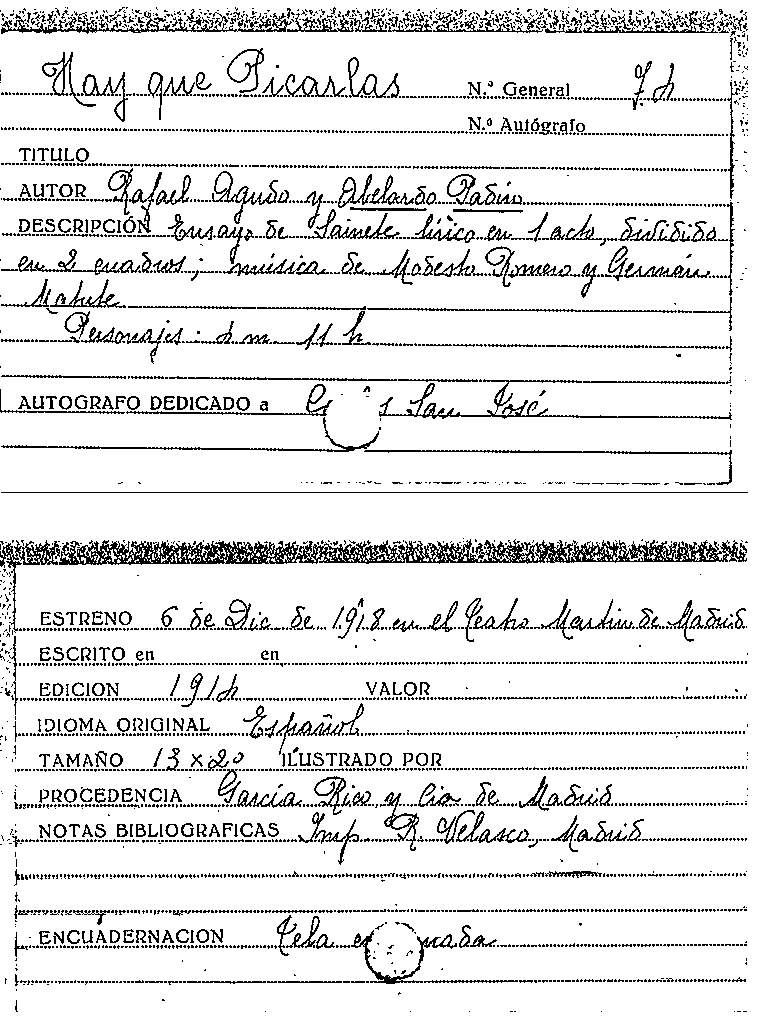 Hay que Picarlas N.º General 74
N.º Autógrafo
TITULO
AUTOR Rafael Agudo y Abelardo
DESCRIPCIÓN Ensayo de Sainete lírico en 1 acto, dividido
en 2 cuadros; música de Modesto Romero y Germán
Matute
Personajes: 4 m. 11 h.
AUTOGRAFO DEDICADO a San José
ESTRENO 6 de Dic de en el Teatro Martin de Madrid
ESCRITO en en
EDICION 1914 VALOR
IDIOMA ORIGINAL Español
TAMAÑO 13 x 20 ILUSTRADO POR
PROCEDENCIA García Rico y Cia de Madrid
NOTAS BIBLIOGRAFICAS Imp. R. Velasco, Madrid
ENCUADERNACION Tela